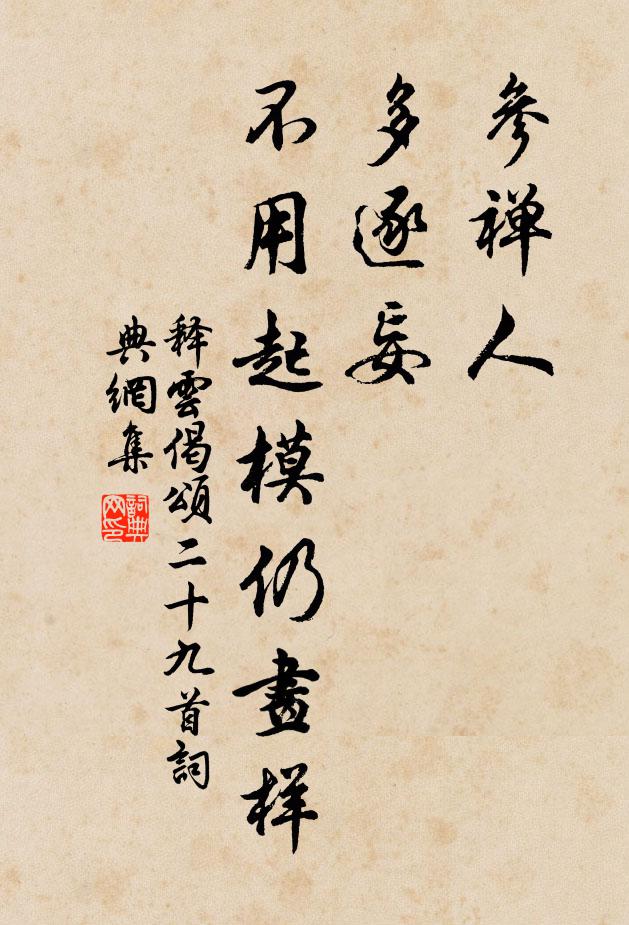 參禅人
多逐妄
不用起模仍畫样
释雲偈頌二十九首詞
典網集
詞典
网印